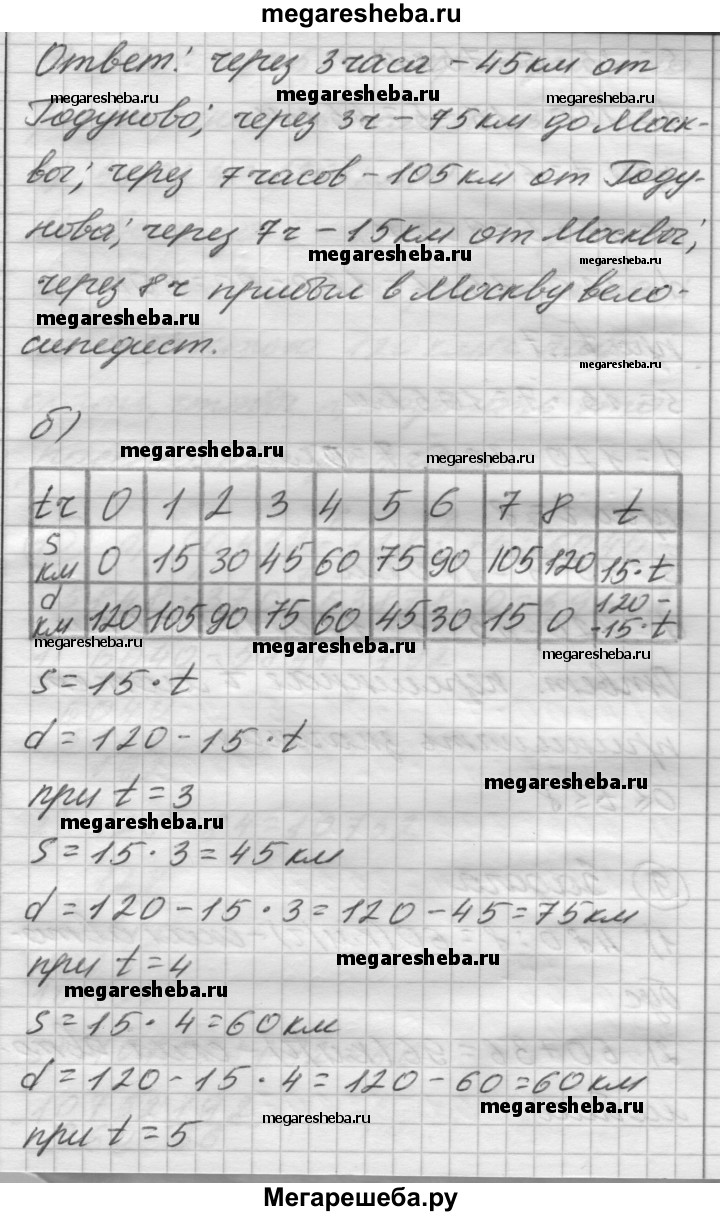 megaresheba.ru
Ответ: через 3 часа – 45 км от
megaresheba.ru megaresheba.ru megaresheba.ru
Годуново; через 3 ч – 75 км до Моск-
вы; через 7 часов – 105 км от Году-
нова; через 7 ч – 15 км от Москвы;
megaresheba.ru megaresheba.ru
через 8 ч прибыл в Москву вело-
megaresheba.ru
сипедист.
megaresheba.ru
б)
megaresheba.ru megaresheba.ru
t ч 0 1 2 3 4 5 6 7 8 t
S км 0 15 30 45 60 75 90 105 120 15·t
d км 120 105 90 75 60 45 30 15 0 120–-15·t
megaresheba.ru megaresheba.ru megaresheba.ru
S = 15 · t
d = 120 – 15 · t
megaresheba.ru
при t = 3
megaresheba.ru
S = 15 · 3 = 45 км
d = 120 – 15 · 3 = 120 – 45 = 75 км
megaresheba.ru
при t = 4
megaresheba.ru
S = 15 · 4 = 60 км
d = 120 – 15 · 4 = 120 – 60 = 60 км
megaresheba.ru megaresheba.ru
при t = 5
Мегарешеба.ру